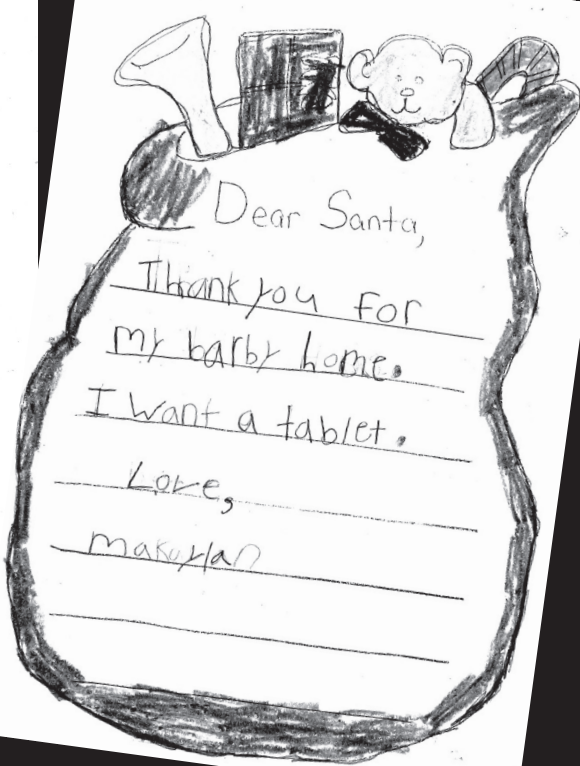 Dear Santa,
Thank you for
my barby home.
I want a tablet.
Love,
makuylan